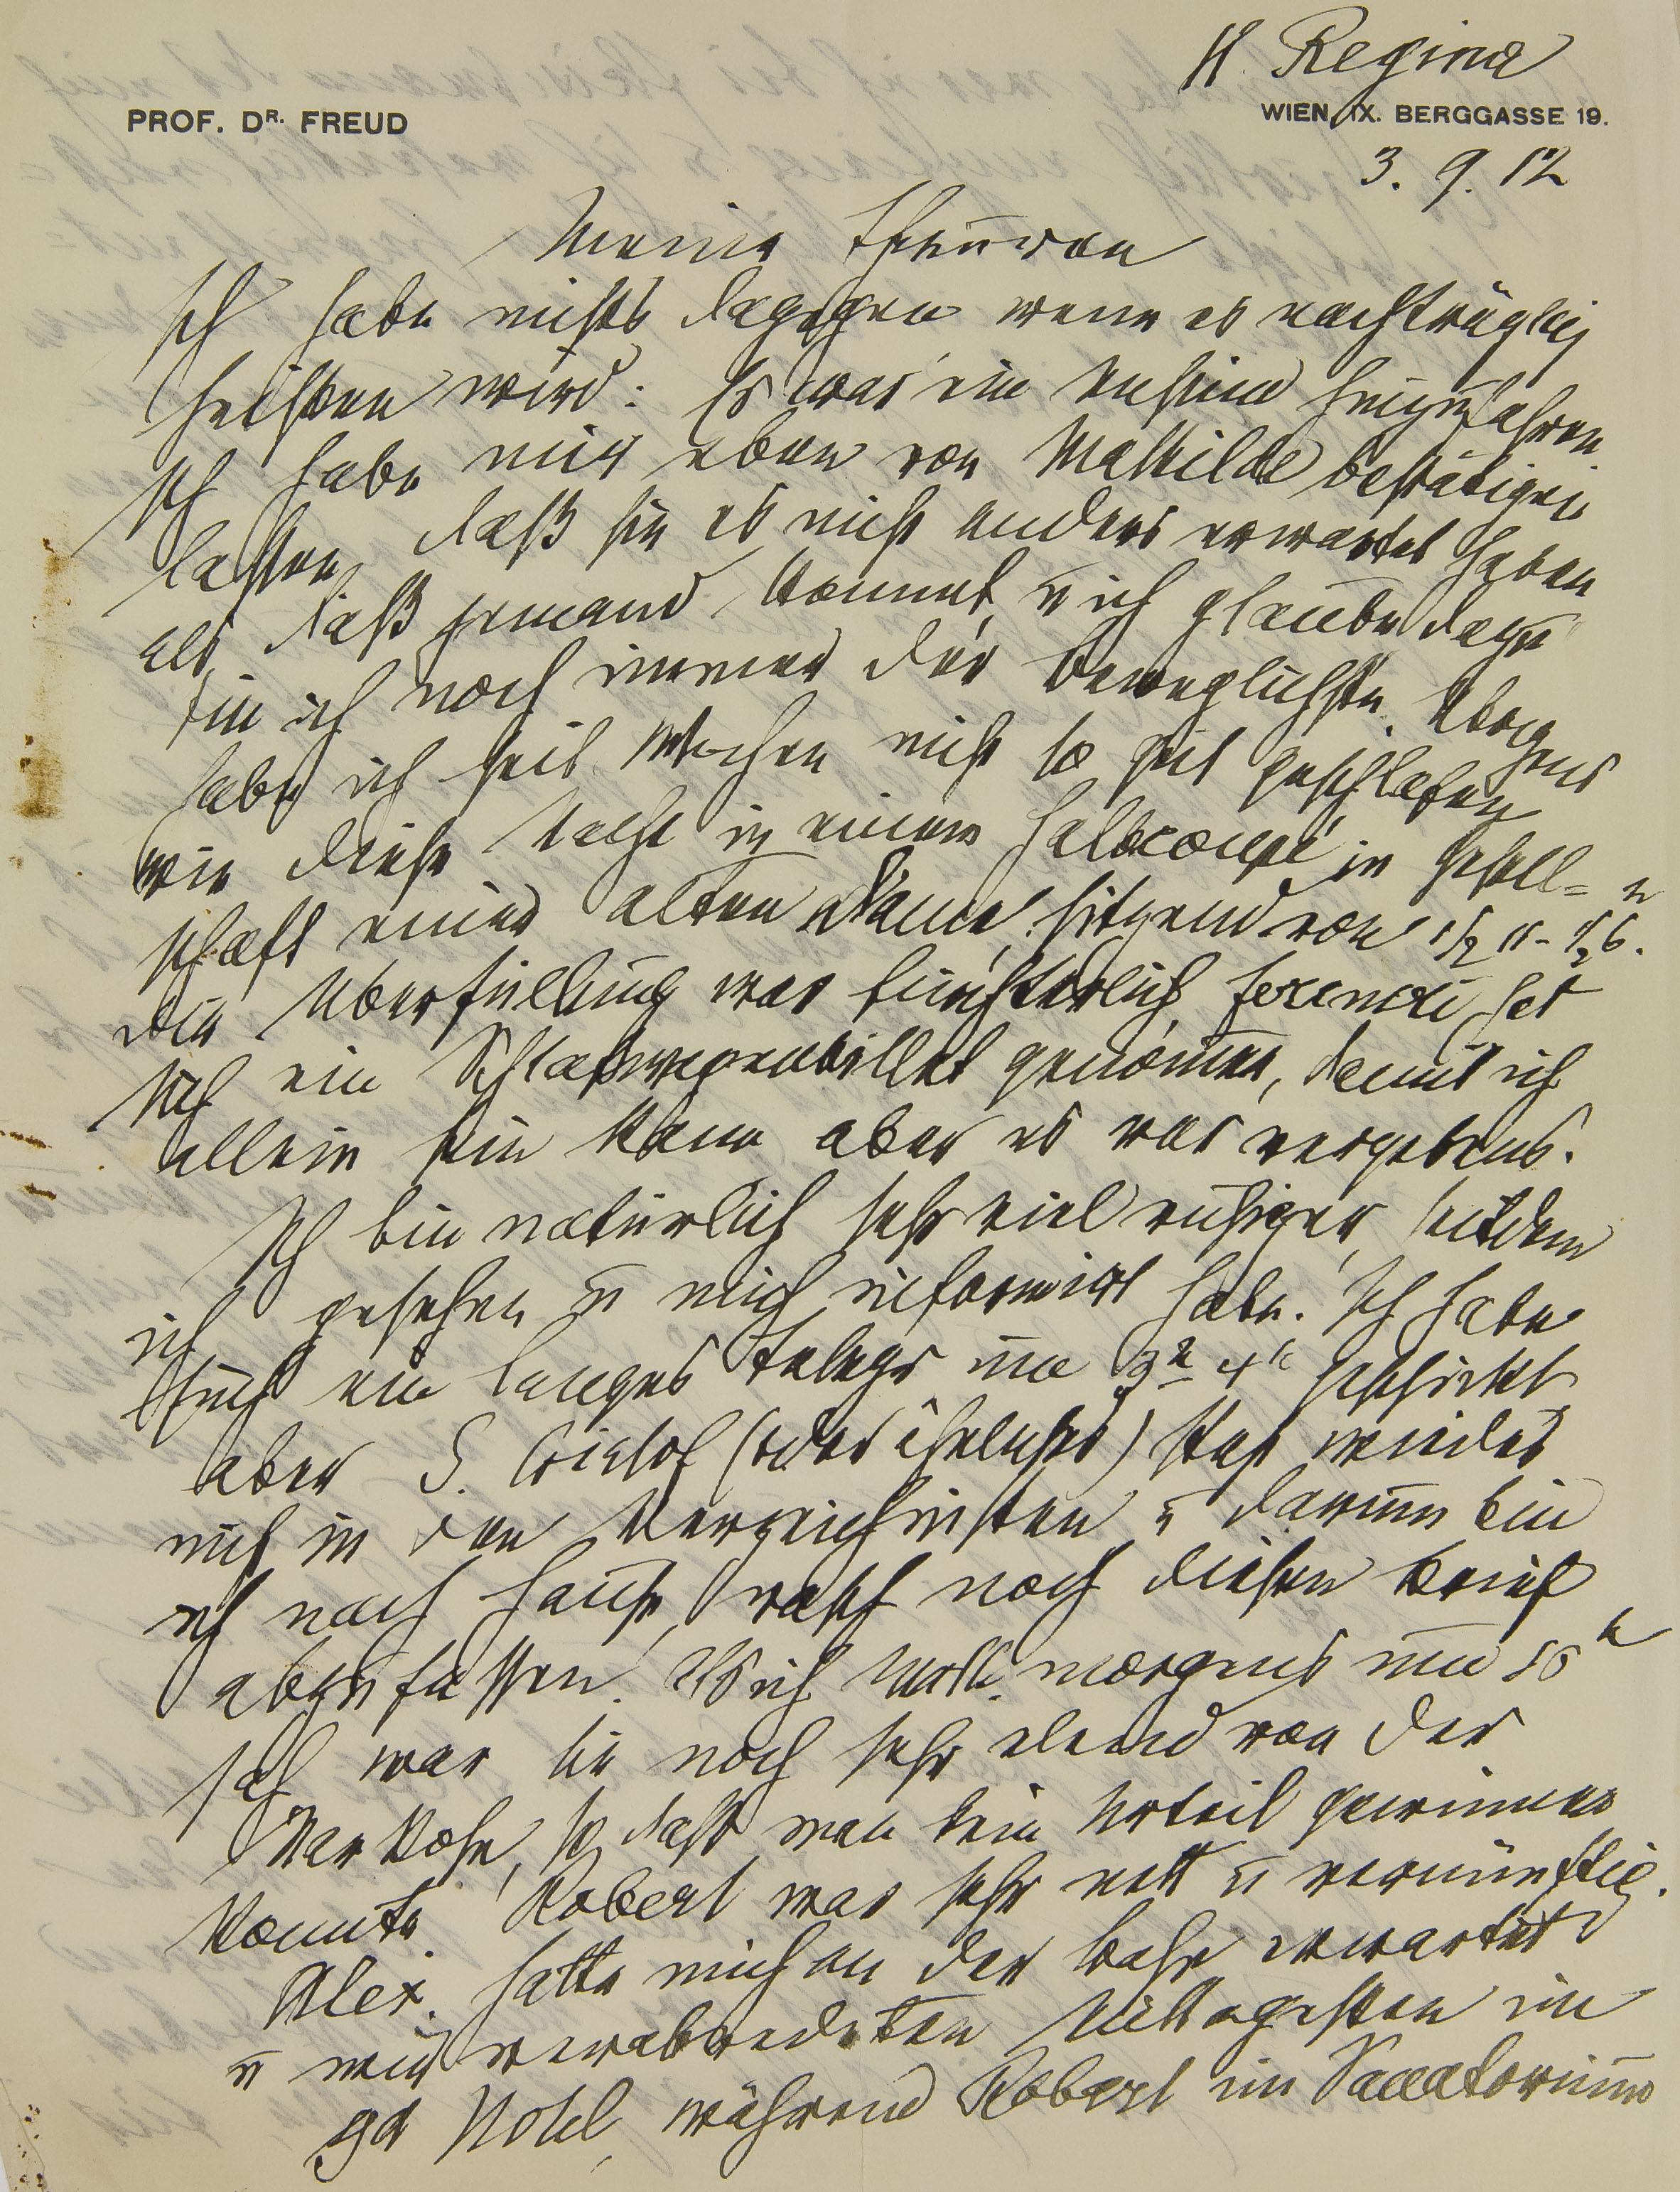 H. Regina
PROF. DR. FREUD
WIEN, IX. BERGGASSE 19.
3. 9. 12
Meine Theuren
Ich habe nichts dagegen wenn es nachträglich
heißen wird: Es war ein Unsinn hinzufahren.
Ich habe mir eben von Mathilde bestätigen
lassen, daß sie es nicht anders erwartet haben
als daß jemand kommt, u ich glaube dazu
bin ich noch immer der beweglichste. Übrigens
habe ich seit Wochen nicht so gut geschlafen
wie diese Nacht in einem Halbcoupé in Gesell=
schaft einer alten Dame sitzend von ½ 11 - ½ 6 h.
Die Überfüllung war fürchterlich, Ferenczi hat
sich ein Schlafwagenbillet genomen, damit ich
allein sein kann aber es war vergebens.
Ich bin natürlich sehr viel ruhiger, seitdem
ich gesehen u mich informirt habe. Ich habe
Euch ein langes Telegr um 3 h geschickt
aber S. Cristof (oder ähnliches) steht weder
nicht in den Verzeichnissen u darum bin
ich nach Hause, rasch noch diesen Brief
abzufassen. Als ich Math. morgens um 10 h
sah war sie noch sehr elend von der
Narkose, so daß man kein Urteil gewinnen
konnte. Robert war sehr nett u vernünftig.
Alex. hatte mich an der Bahn erwartet
u wir verabredeten Mittagessen im
Gd Hotel, während Robert im Sanatorium